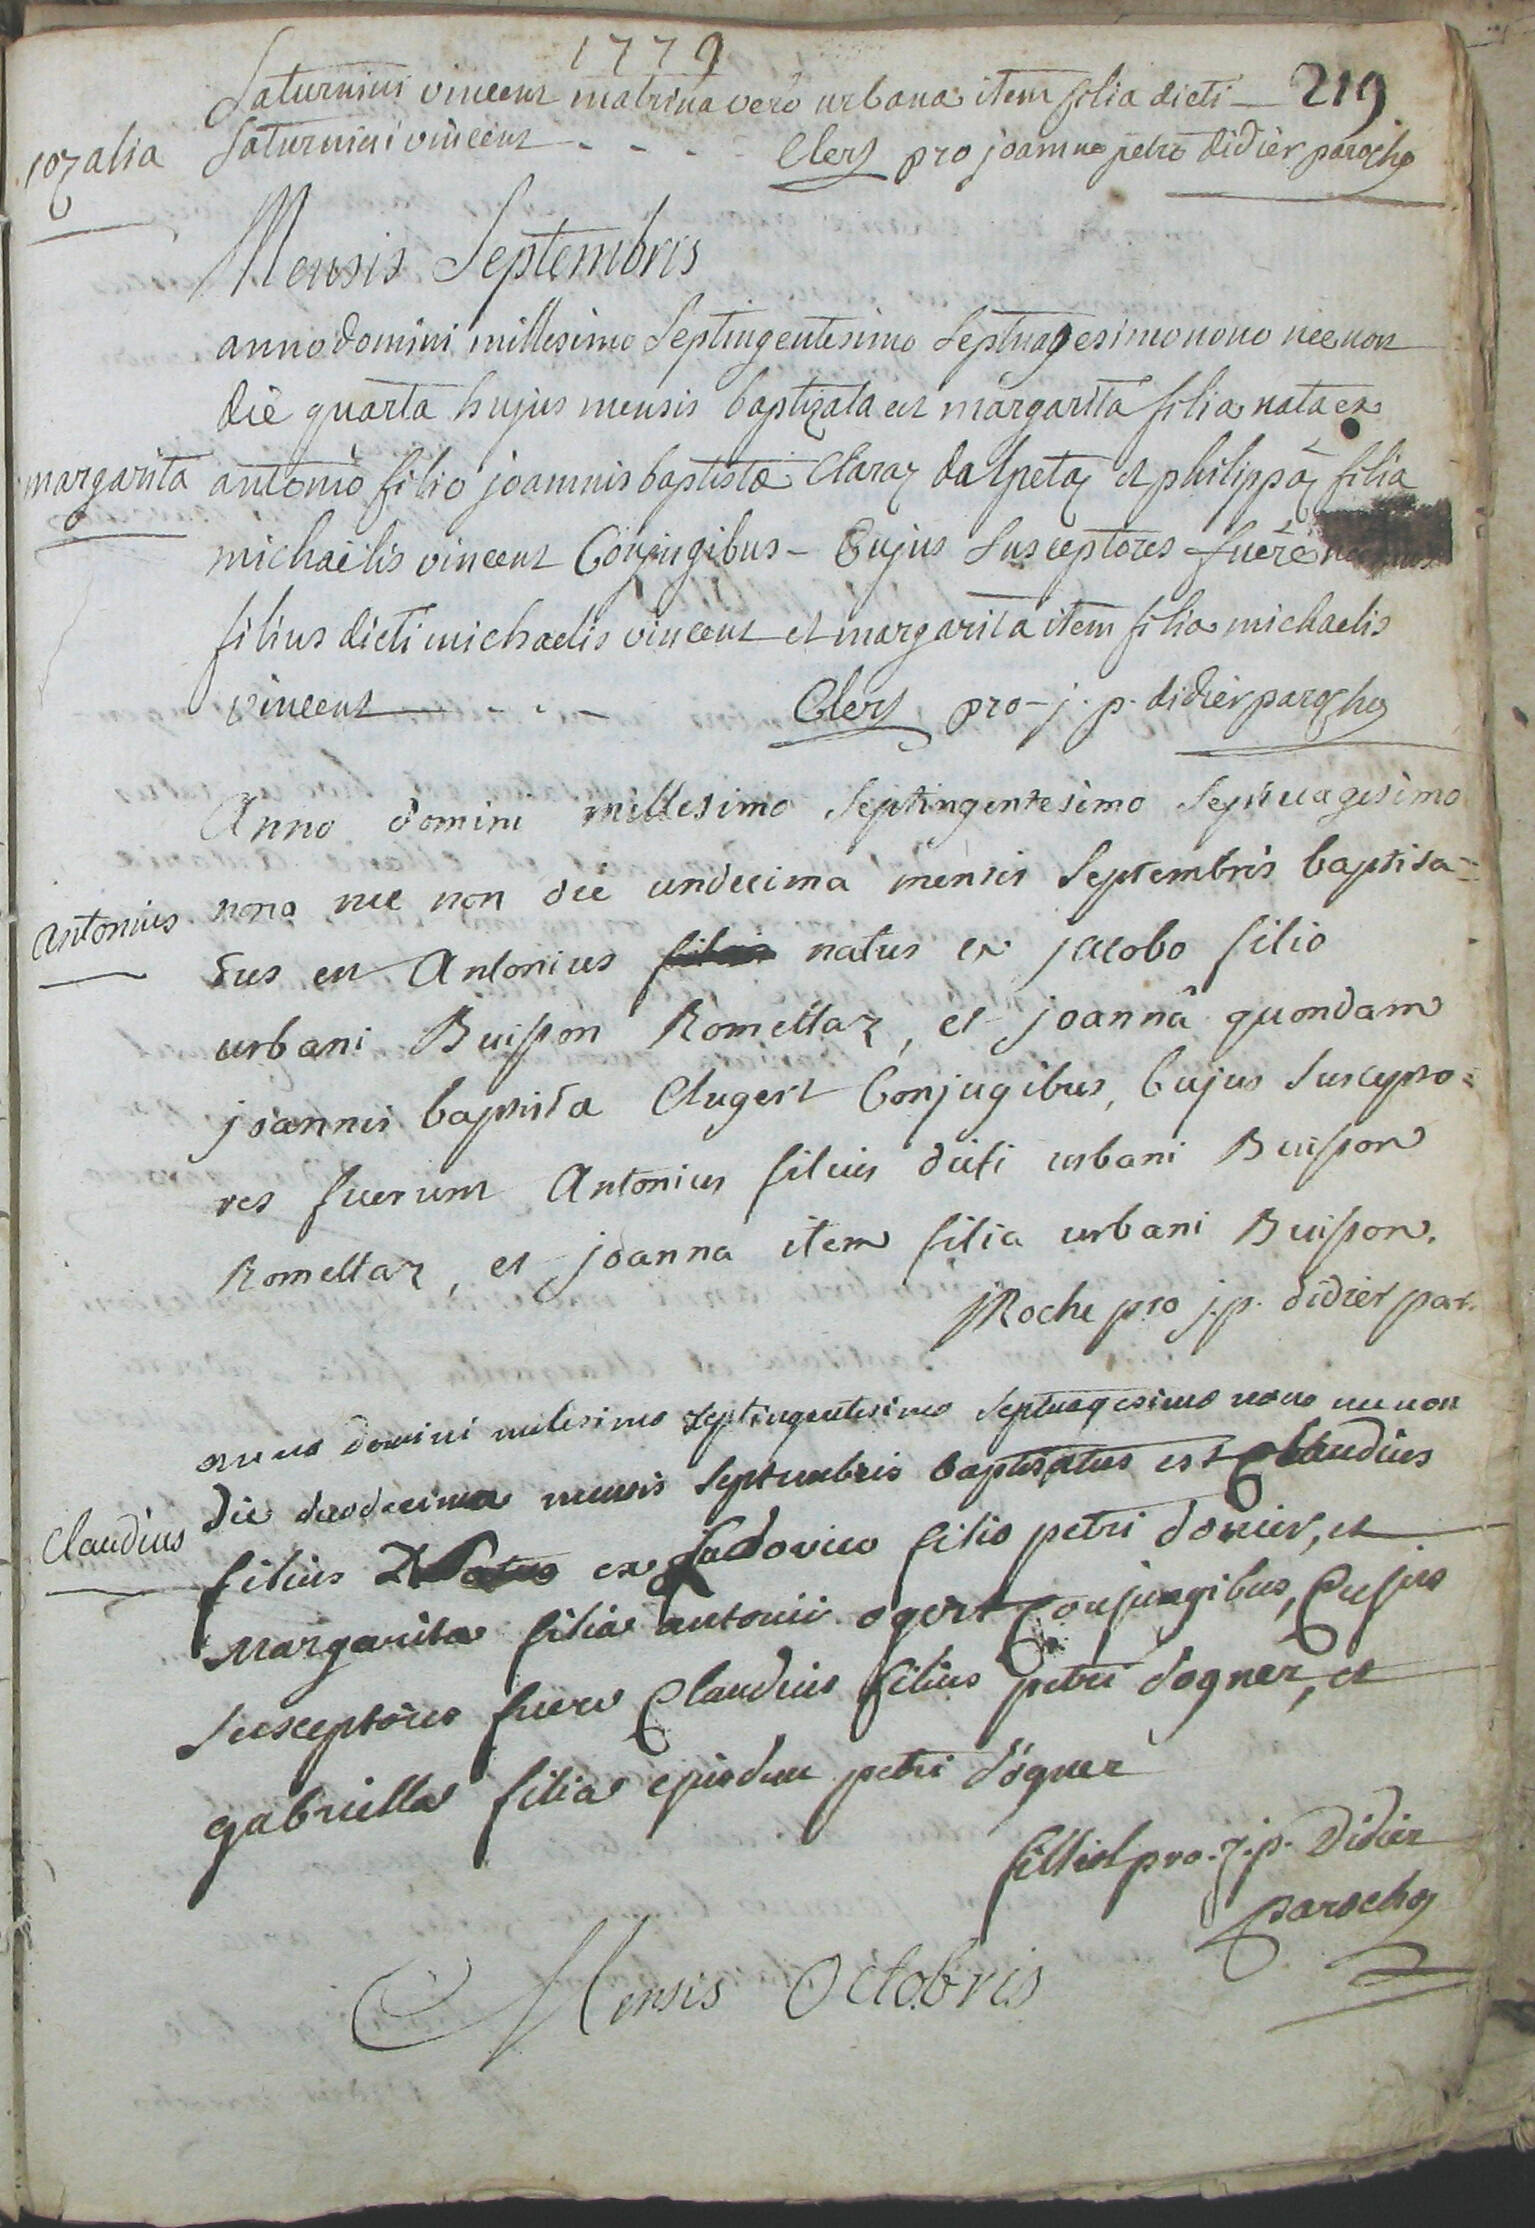 1779
Saturnini vincent matrina vero urbana item filia dicti 219
rozalia Saturnini vincent - - - - Clerz pro joanne petro didier parocho
Mensis Septembris
anno domini millesimo Septingentesimo Septuagesimo nono necnon
die quarta hujus mensis baptizata est margarita filia nata ex
margarita antonio filio joannis baptistæ Claraz dalpetaz et philippâ filia
michaelis vincent Conjugibus - Cujus Susceptores fuére
filius dicti michaelis vincent et margarita item filia michaelis
vincent - - - Clerz pro j. p. didier parocho
Anno domini millesimo Septingentesimo Septuagesimo
Antonius nono nec non die undecima mensis Septembris baptisa=
tus est Antonius natus ex jacobo filio
urbani Buisson Romettaz, et joannâ quondam
joannis baptista Augert Conjugibus, Cujus Suscepto=
res fuerunt Antonius filius dicti urbani Buisson
Romettaz, et joanna item filia urbani Buisson.
Roche pro j.p. didier par.
anno domini milesimo septingentesimo Septuagesimo nono necnon
die duodecima mensis Septembris baptisatus est Claudius
Claudius filius Natus ex Ludovico filio petri donier, et
Margarita filia antonii ogert Conjugibus, Cujus
Susceptores fuere Claudius filius petri dogner, et
gabriella filia ejusdem petri dogner
filliol pro. j. p. Didier
parocho
Mensis Octobris